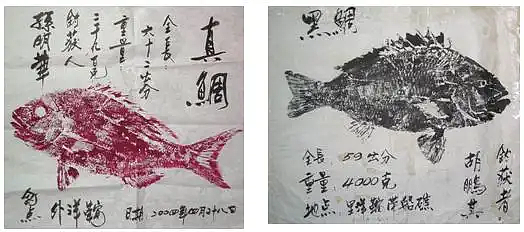 真鯛
全長:
六十二公分
重量:
三千九百克
釣获人
孫明華
釣点
外洋
日期 2000四年四月廿八日
黑鯛
全長: 59公分
重量: 4000克
地点: 船礁
釣获者
胡鵬其